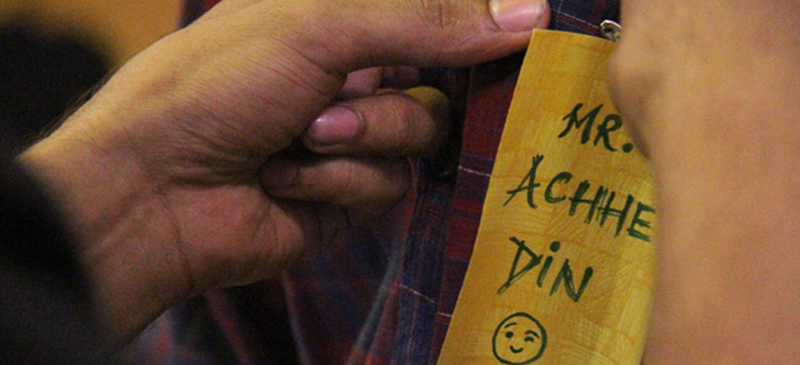 MR.
ACHHE
DIN